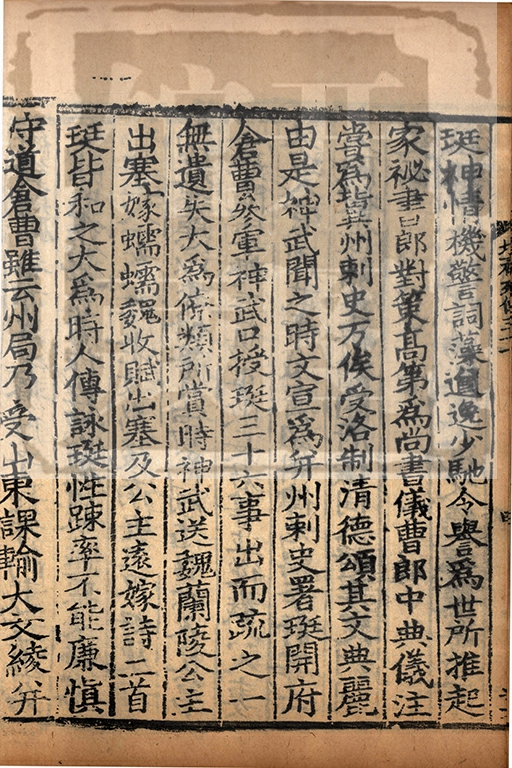 珽神情機警詞藻遒逸少馳令譽爲世所推起
家祕書郎對策高第爲尚書儀曹郎中典儀注
嘗爲冀州刺史万俟受洛制清德頌其文典麗
由是神武聞之時文宣爲并州刺史署珽開府
倉曹參軍神武口授珽三十六事出而疏之一
無遺失大爲僚類所賞時神武送魏蘭陵公主
出塞嫁蠕蠕魏收賦出塞及公主遠嫁詩二首
珽皆和之大爲時人傳詠珽性疎率不能廉慎
守道倉曹雖云州局乃受山東課輸大文綾并